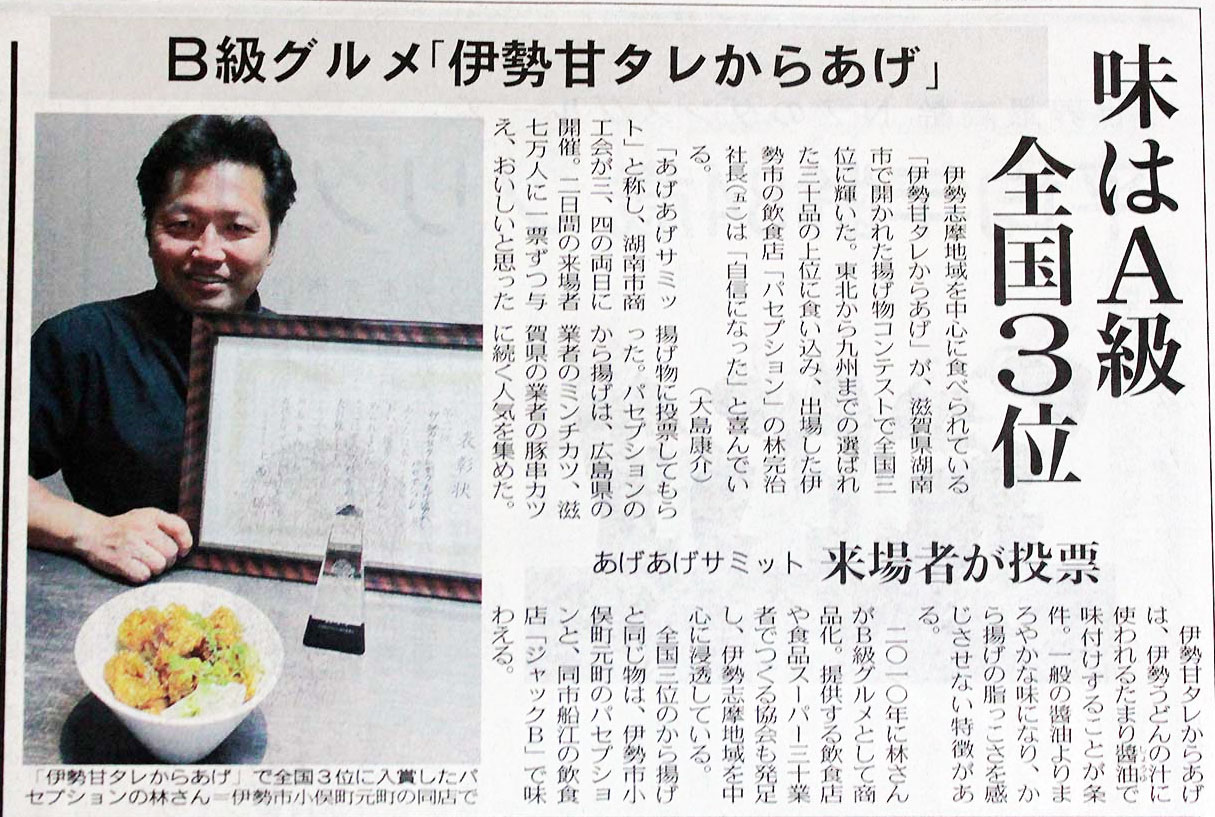 B級グルメ「伊勢甘タレからあげ」
味はA級
全国3位
伊勢志摩地域を中心に食べられている
「伊勢甘タレからあげ」が、滋賀県湖南
市で開かれた揚げ物コンテストで全国三
位に輝いた。東北から九州までの選ばれ
た三十品の上位に食い込み、出場した伊
勢市の飲食店「パセプション」の林完治
社長(五二)は「自信になった」と喜んでい
る。
(大島康介)
「あげあげサミッ
ト」と称し、湖南市商
工会が三、四の両日に
開催。二日間の来場者
七万人に一票ずつ与
え、おいしいと思った
揚げ物に投票してもら
った。パセプションの
から揚げは、広島県の
業者のミンチカツ、滋
賀県の業者の豚串カツ
に続く人気を集めた。
あげあげサミット 来場者が投票
伊勢甘タレからあげ
は、伊勢うどんの汁に
使われるたまり醬油で
しょうゆ
味付けすることが条
件。一般の醬油よりま
ろやかな味になり、か
ら揚げの脂っこさを感
じさせない特徴があ
る。
二〇一〇年に林さん
がB級グルメとして商
品化。提供する飲食店
や食品スーパー三十業
者でつくる協会も発足
し、伊勢志摩地域を中
心に浸透している。
全国三位のから揚げ
と同じ物は、伊勢市小
俣町元町のパセプショ
ンと、同市船江の飲食
店「ジャックB」で味
わえる。
表彰状
「伊勢甘タレからあげ」で全国3位に入賞したパ
セプションの林さん=伊勢市小俣町元町の同店で